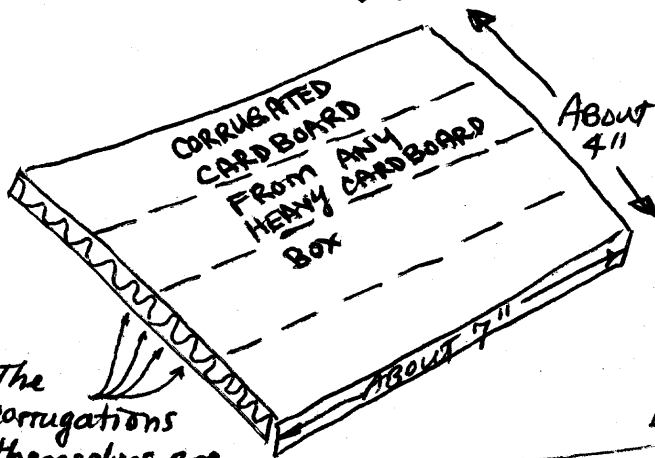 CORRUGATED
CARDBOARD
FROM ANY
HEAVY CARDBOARD
BOX
ABOUT
4"
ABOUT 7"
The
corrugations
themselves are